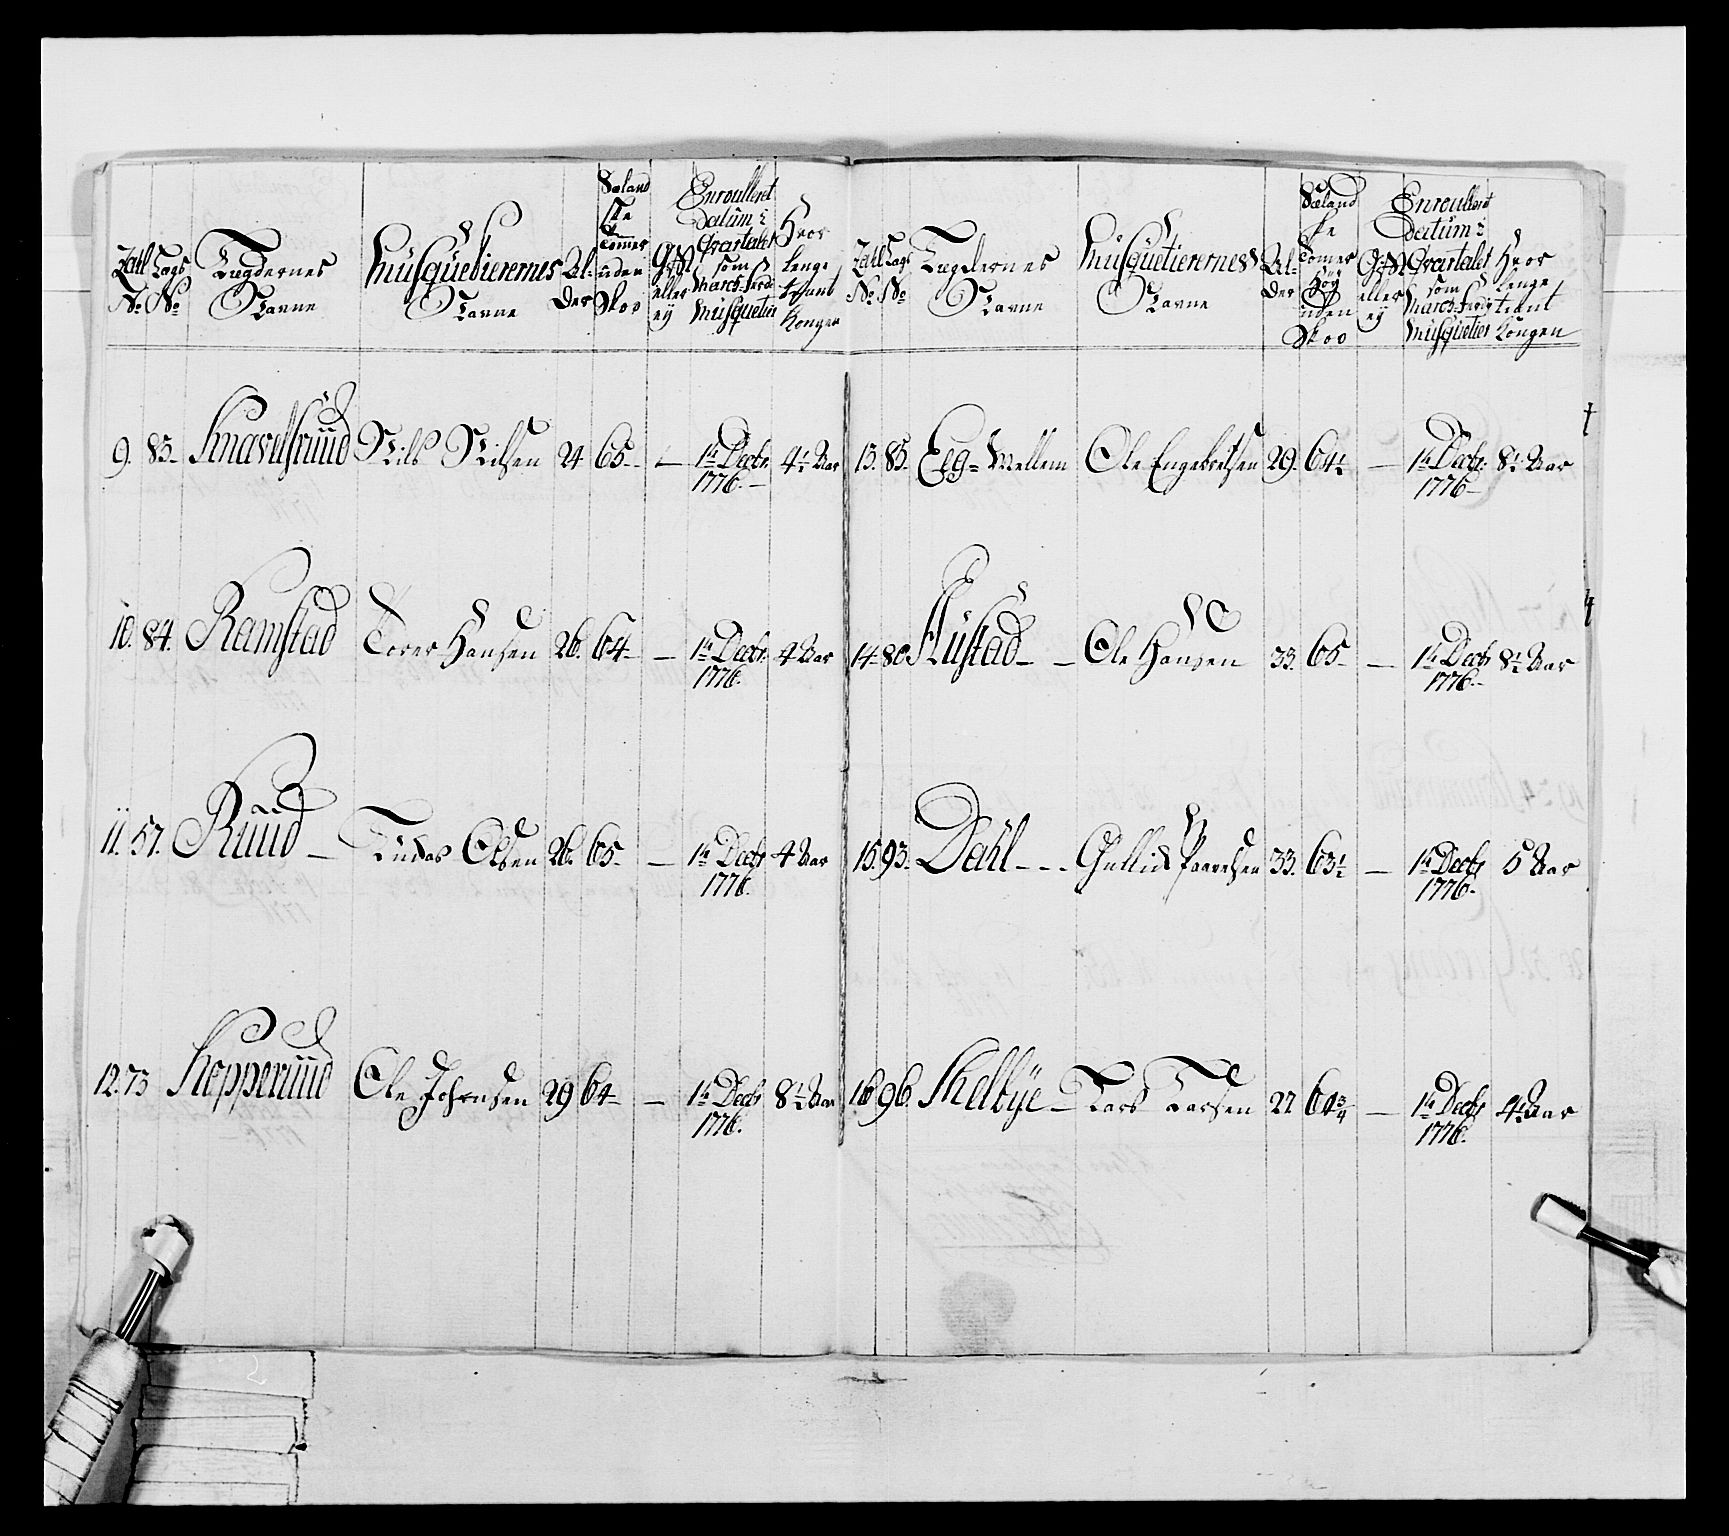 Zahl No. Lægs No. Lægdernes Navne Musquetierernes Navne Alder Sælandske Tommer uden Skoe Gift eller ey Enroulleret Datum i Qvartalet som March-færdig Musquetier Hvor lenge tient Kongen
9. 83. Knavelsruud Nils Nilsen 24 65 – 1te Decbr. 1776. 4½ Aar
10. 84. Ramstad Torer Hansen 26. 64 – 1te Decbr. 1776. 4 Aar
11. 57. Ruud – Olsen 26. 65 – 1te Decbr 1776. 4 Aar
12. 73 Kopperuud Ole Johnsen 29 64 – 1te Decbr 1776. 8½ Aar
Zahl No. Lags No. Lægdernes Navne Musquetierernes Navne Alder Sælandske Tomer høy uden Skoe Gift eller ey Enroulleret Datum i Qvartalet som March-færdig Musquetier Hvor lenge tient Kongen
13. 85. Eeg=Mellem Ole Engebretsen 29. 64½ – 1te Decbr. 1776 8½ Aar
14. 80. Rustad – Ole Hansen 33. 65 – 1te Decbr 1776. 8½ Aar
15. 93. Dahl – Gullick Paavelsen 33. 63½ – 1te Decbr 1776. 5 Aar
16. 96. Skelbye – Lars Larsen 22 64¾ – 1te Decbr 1776. 4½ Aar